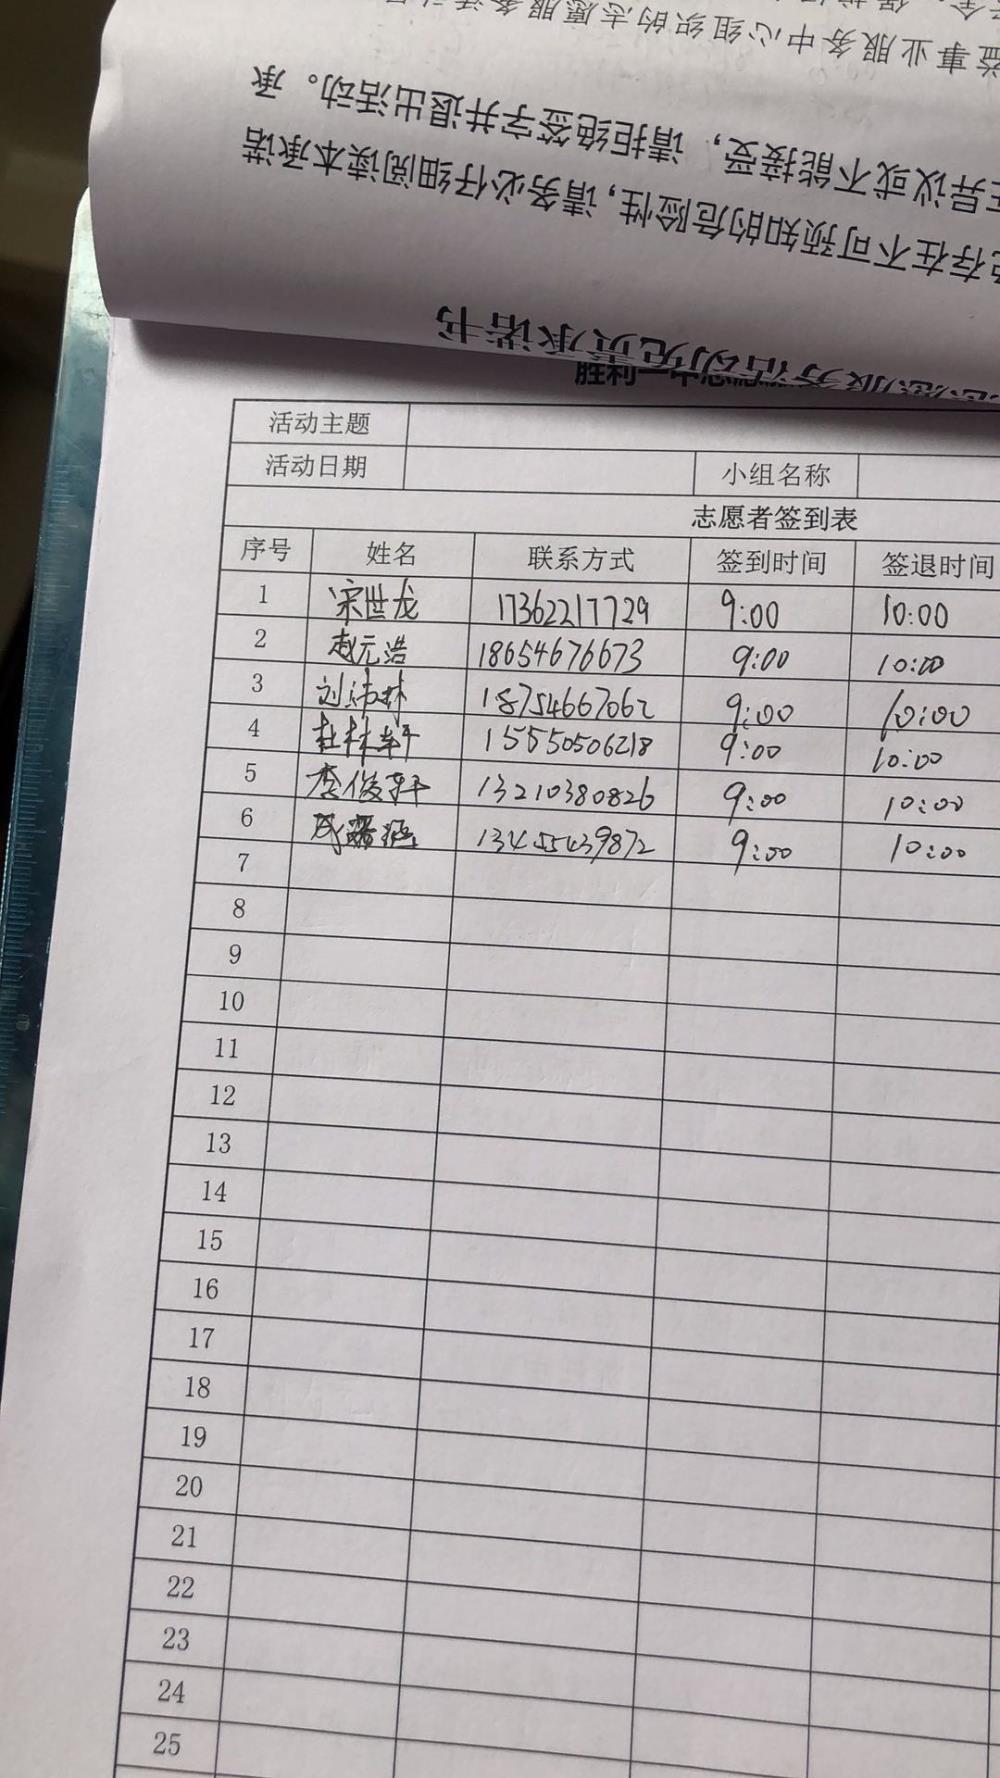 益事业服务中心组织的志愿服务活动
在异议或不能接受，请拒绝签字并退出活动。承
存在不可预知的危险性，请务必仔细阅读本承诺
志愿服务活动免责承诺书
胜利一中志愿
活动主题
活动日期 小组名称
志愿者签到表
序号 姓名 联系方式 签到时间 签退时间
1 宋世龙 17362217729 9:00 10:00
2 赵元浩 18654676673 9:00 10:00
3 刘沛林 18754667062 9:00 10:00
4 杜林轩 15550506218 9:00 10:00
5 李俊轩 13210380826 9:00 10:00
6 13455439872 9:00 10:00
7
8
9
10
11
12
13
14
15
16
17
18
19
20
21
22
23
24
25